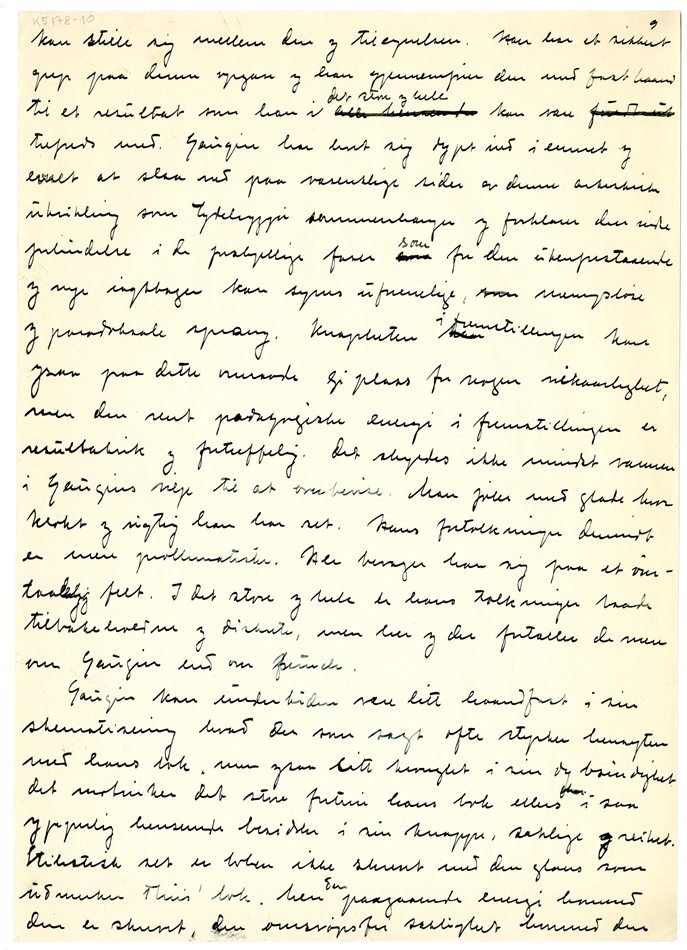 K5178-10
9
kan stille sig mellem den og tilegnelsen. Han har et sikkert
grep paa denne opgave og han gjennemfører den med fast haand
til et resultat som han i det store og hele kan være
tilfreds med. Gauguin har levet sig dypt ind i emnet og
evnet at slaa ned paa væsentlige sider av denne kunstneriske
utvikling som tydeliggjør sammenhænger og forklarer den indre
forbindelse i de forskjellige faser som for den utenforstaaende
og nye iagttager kan synes uforenelige, meningsløse
og paradoksale sprang. Knapheten i fremstillingen kan
ogsaa paa dette omraade gi plass for nogen vilkaarlighet,
men den rent pædagogiske energi i fremstillingen er
resultatrik og fortræffelig. Det skyldes ikke mindst varmen
i Gauguins vilje til at overbevise. Man føler med glæde hvor
sterkt og rigtig han har set. Hans fortolkninger derimot
er mere problematiske. Her bevæger han sig paa et øm-
taalig felt. I det store og hele er hans tolkninger baade
tilbakeholdne og diskrete, men her og der fortæller de mere
om Gauguin end om Munch.
Gauguin kan undertiden være litt haandfast i sin
skematisering hvad der som sagt ofte styrker hensigten
med hans bok, men ogsaa litt knuget i sin dybsindighet
det motvirker det store fortrin hans bok ellers i saa
ypperlig henseende besidder i sin knappe, saklige greihet.
Stilistisk set er boken ikke skrevet med den glans som
utmerker Thiis' bok. Men den paagaaende energi hvormed
den er skrevet, den omsvøpsfri saklighet hvormed den